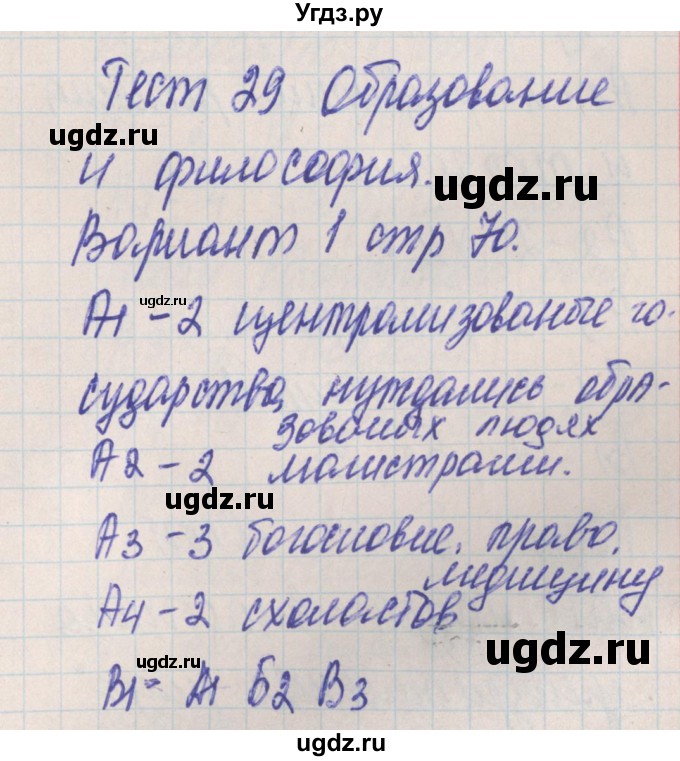 Угдз.ру
Тест 29 Образование
ugdz.ru
и философия.
ugdz.ru
Вариант 1 стр 70.
ugdz.ru
А1 - 2 централизованые го-
сударства нуждались обра-
зованых людях
А2 - 2 магистрами.
ugdz.ru
А3 - 3 богословие, право,
медицину
А4 - 2 схоластов
ugdz.ru
ugdz.ru
В1 - А1 Б2 В3
ugdz.ru